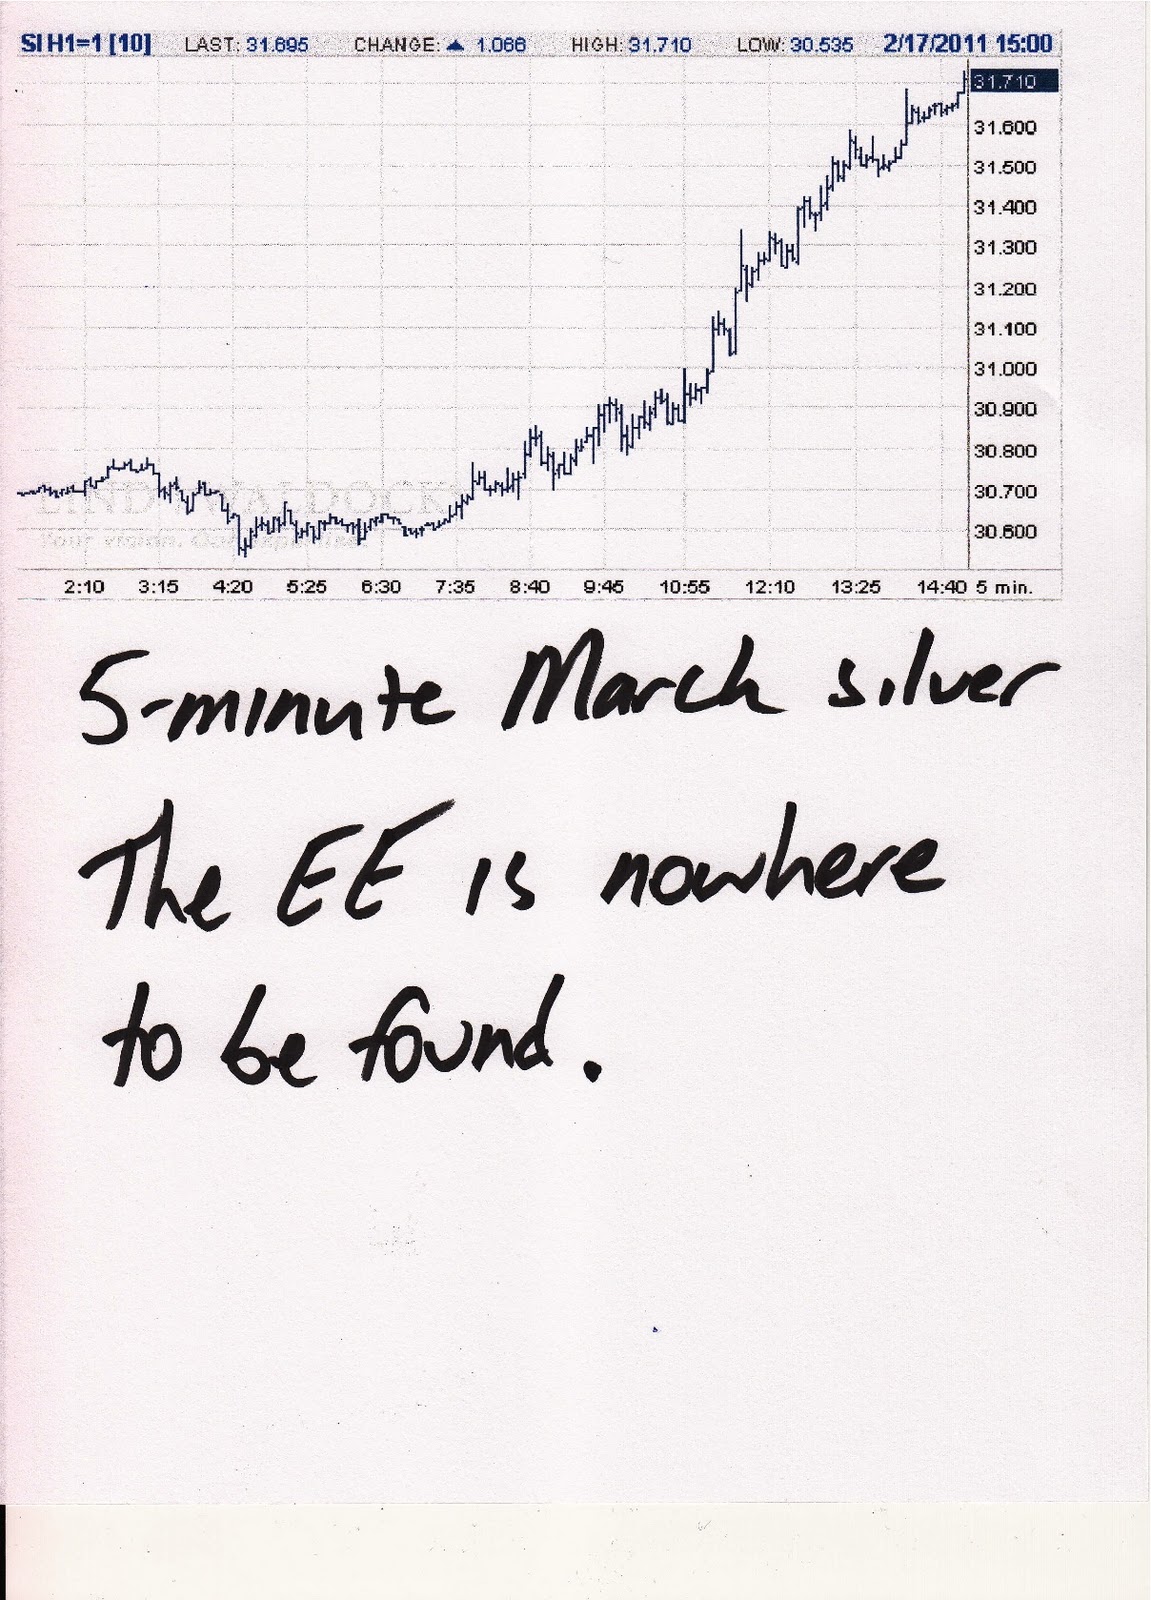 SI H1=1 [10] LAST: 31.695 CHANGE: ▲ 1.066 HIGH: 31.710 LOW: 30.535 2/17/2011 15:00
31.710
31.600
31.500
31.400
31.300
31.200
31.100
31.000
30.900
30.800
30.700
30.600
LIND-WALDOCK
Your vision. Our expertise.
2:10 3:15 4:20 5:25 6:30 7:35 8:40 9:45 10:55 12:10 13:25 14:40 5 min.
5-minute March silver
The EE is nowhere
to be found.